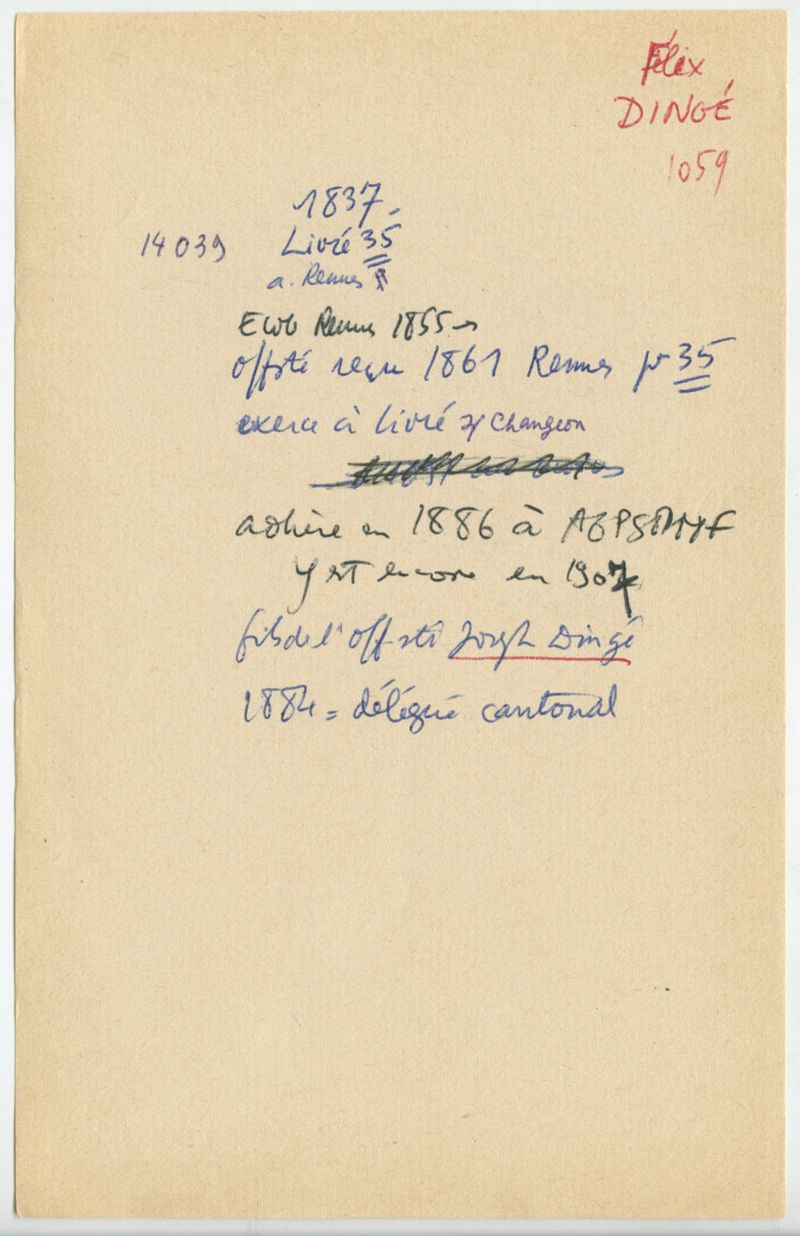 Félix
DINGÉ
1059
1837
14039 Livré 35
a. Rennes
Rennes 1855 →
offsté reçu 1861 Rennes pr 35
exerce à Livré s/ Changeon
adhère en 1886 à
y est encore en 1907
fils de l'offsté Joseph Dingé
1884 = délégué cantonal